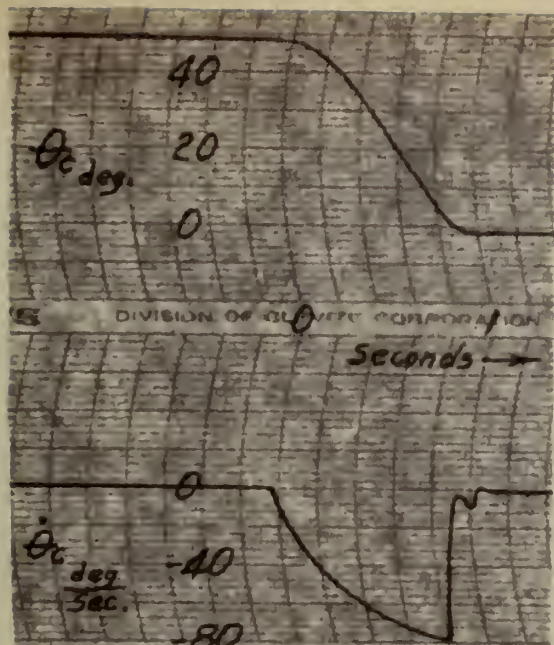 40
θc deg.
20
0
DIVISION OF CLEVITE CORPORATION
0 1
seconds →
0
θ̇c deg/sec.
-40
-80